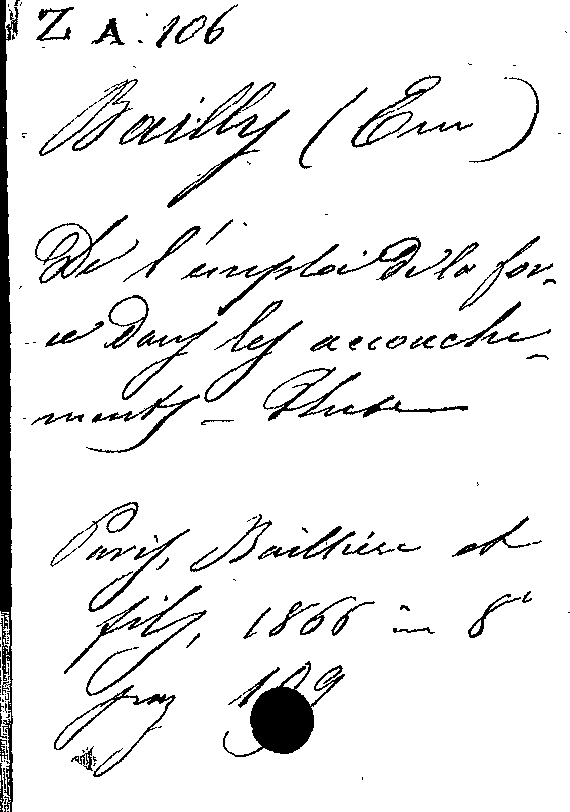 Z A. 106
Bailly (Em)
De l'emploi de la for-
ce dans les accouche-
ments — Thèse
Paris, Baillière et
fils, 1866 in 8°
pag